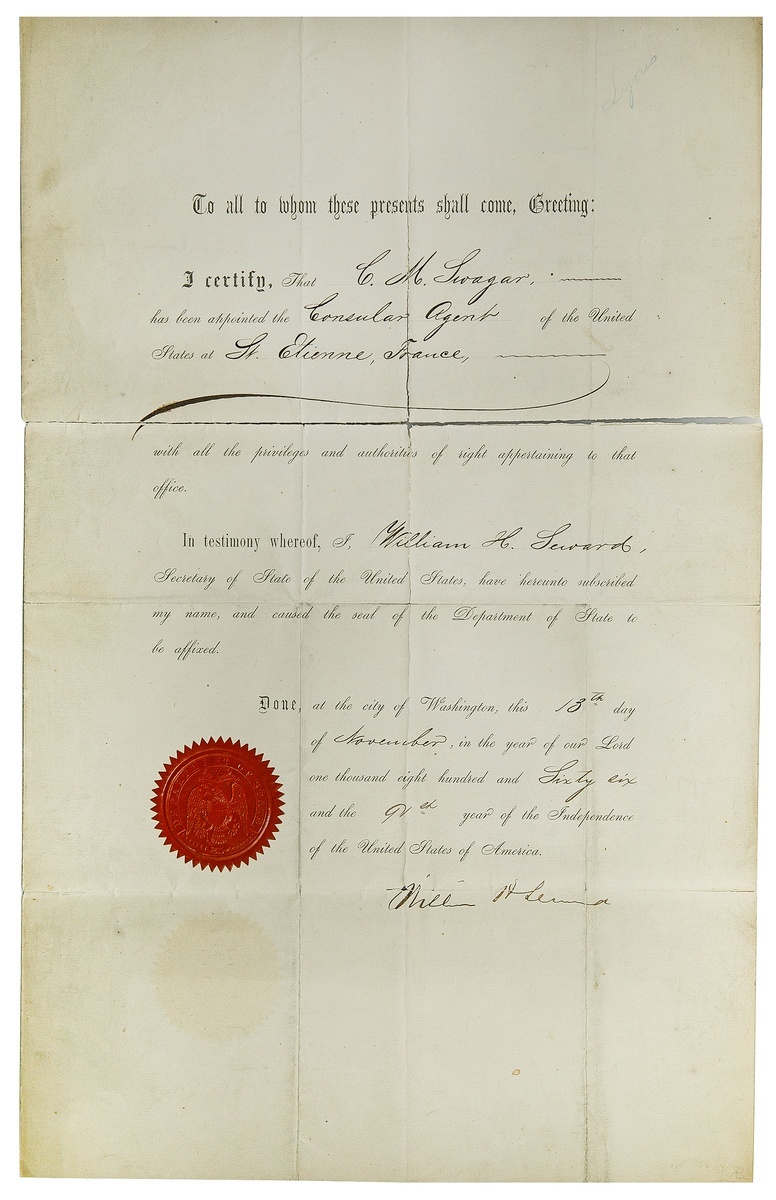 Lyons
To all to whom these presents shall come, Greeting:
I certify, That C. M. Swagar,
has been appointed the Consular Agent of the United
States at St. Etienne, France,
with all the privileges and authorities of right appertaining to that
office.
In testimony whereof, I, William H. Seward,
Secretary of State of the United States, have hereunto subscribed
my name, and caused the seal of the Department of State to
be affixed.
Done, at the city of Washington, this 13th day
of November, in the year of our Lord
one thousand eight hundred and Sixty six
and the 91st year of the Independence
of the United States of America.
William H Seward